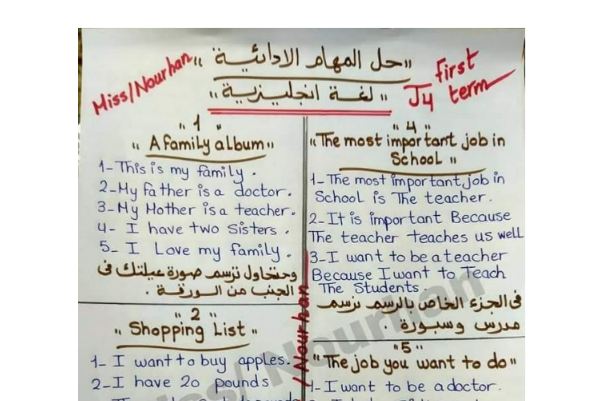 "حل المهام الادائية"
"لغة انجليزية"
Miss/Nourhan
J4
first
term
"1"
"A family album"
1- This is my family.
2- My father is a doctor.
3- My Mother is a teacher.
4- I have two Sisters.
5- I Love my family.
وحتحاول ترسم صورة عيلتك فى
الجنب من الورقة.
"2"
"Shopping List"
1- I want to buy apples.
2- I have 20 pounds
"4"
"The most important job in
School"
1- The most important job in
School is The teacher.
2- It is important Because
The teacher teaches us well
3- I want to be a teacher
Because I want to Teach
The Students.
فى الجزء الخاص بالرسم نرسم
مدرس وسبورة.
"5"
"The job you want to do"
1- I want to be a doctor.
/Nourhan
Miss/Nourhan